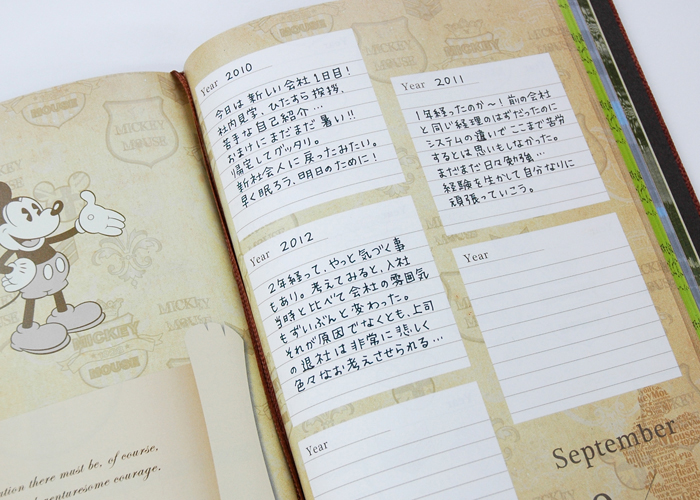 Year 2010
今日は新しい会社1日目!
社内見学、ひたすら挨拶、
苦手な自己紹介…
おまけにまだまだ暑い!!
帰宅してグッタリ。
新社会人に戻ったみたい。
早く眠ろう、明日のために!
Year 2011
1年経ったのか〜!前の会社
と同じ経理のはずだったのに
システムの違いでここまで苦労
するとは思いもしなかった。
まだまだ日々勉強…
経験を生かして自分なりに
頑張っていこう。
Year 2012
2年経って、やっと気づく事
もあり。考えてみると、入社
当時と比べて会社の雰囲気
もずいぶんと変わった。
それが原因でなくとも、上司
の退社は非常に悲しく
色々なお考えさせられる…
Year
Year
September
MICKEY
MOUSE
MICKEY
MOUSE
MICKEY
MOUSE
ation there must be, of course.
venturesome courage.